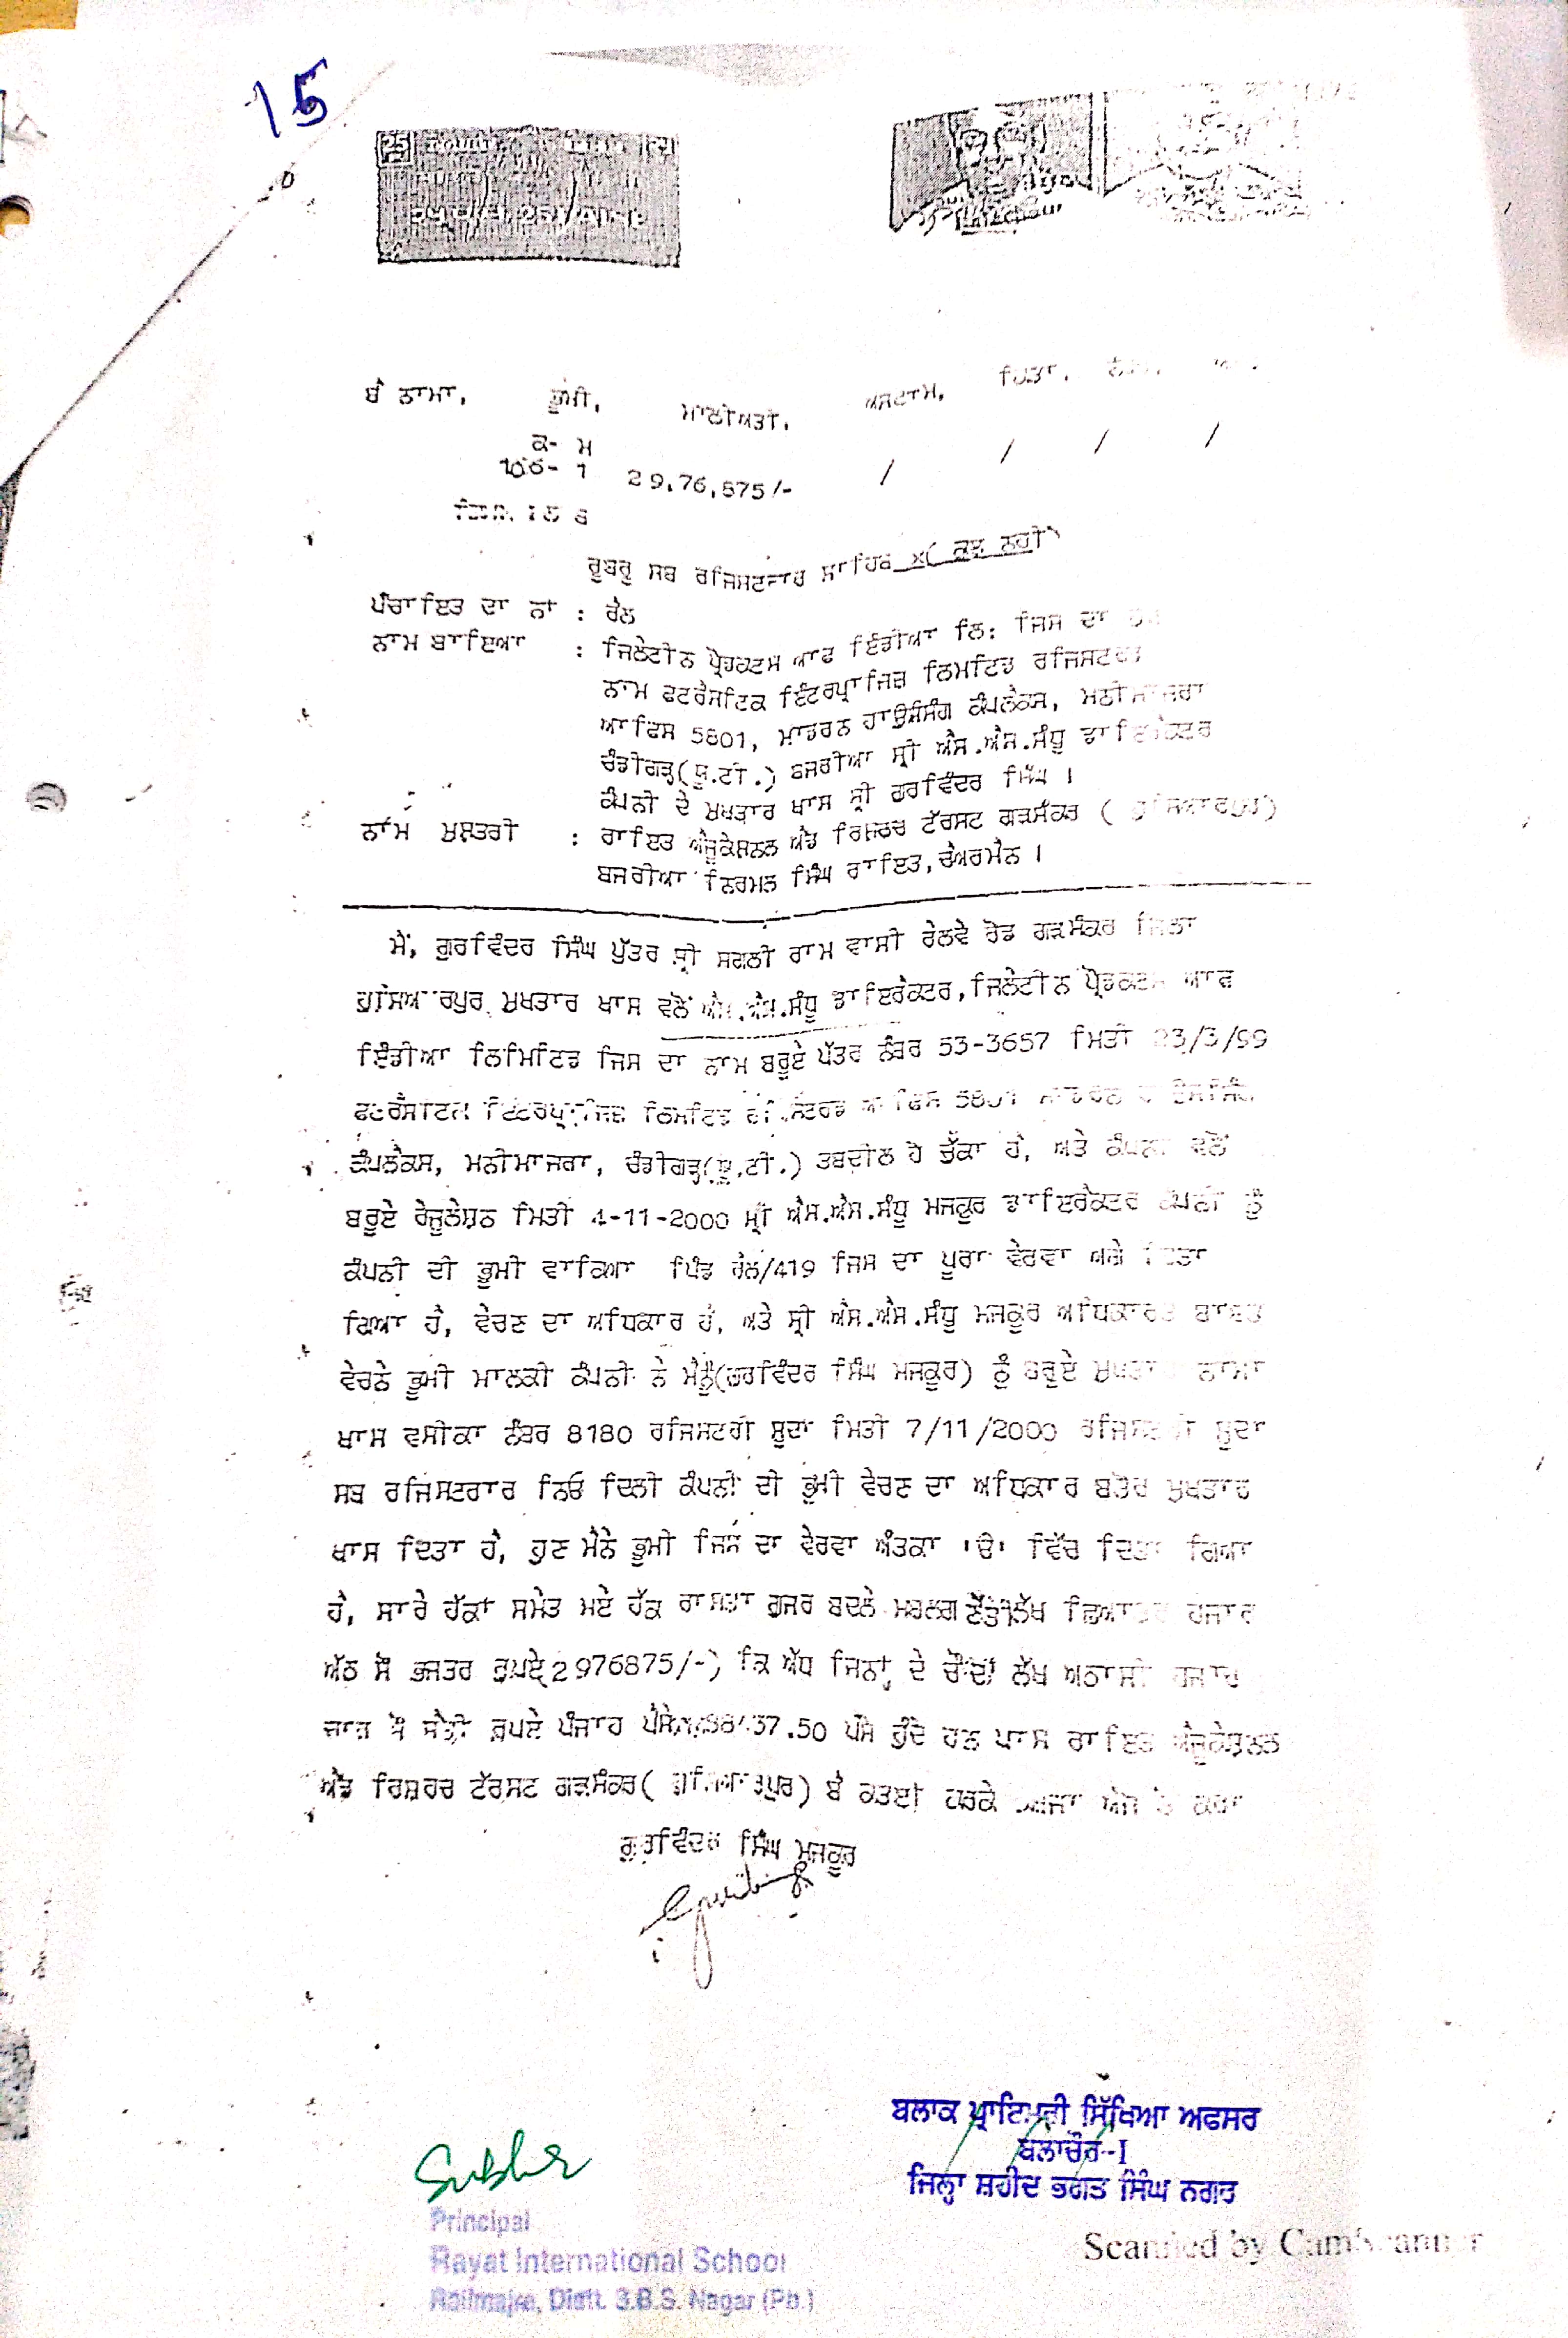 15
25
ਬੈ ਨਾਮਾ, ਭੂਮੀ, ਮਾਲੀਅਤੀ, ਅਸਟਾਮ,
ਕ- ਮ
106- 1 29,76,875/- / / / /
ਰੂਬਰੂ ਸਬ ਰਜਿਸਟਰਾਰ ਸਾਹਿਬ x( ਕੁਝ ਨਹੀਂ
ਪੰਚਾਇਤ ਦਾ ਨਾਂ : ਰੈਲ
ਨਾਮ ਬਾਇਆ : ਜਿਲੇਟੀਨ ਪ੍ਰੋਡਕਟਸ ਆਫ ਇੰਡੀਆ ਲਿ: ਜਿਸ ਦਾ
ਨਾਮ ਫਟਰੈਸਟਿਕ ਇੰਟਰਪ੍ਰਾਜਿਜ਼ ਲਿਮਟਿਡ ਰਜਿਸਟਰਡ
ਆਫਿਸ 5801, ਮਾਡਰਨ ਹਾਊਸਿੰਗ ਕੰਪਲੈਕਸ, ਮਨੀਮਾਜਰਾ
ਚੰਡੀਗੜ੍ਹ(ਯੂ.ਟੀ.) ਬਜਰੀਆ ਸ਼੍ਰੀ ਐਸ.ਐਸ.ਸੰਧੂ ਡਾਇਰੈਕਟਰ
ਕੰਪਨੀ ਦੇ ਮੁਖਤਾਰ ਖਾਸ ਸ਼੍ਰੀ ਗੁਰਵਿੰਦਰ ਸਿੰਘ ।
ਨਾਂਮ ਮੁਸ਼ਤਰੀ : ਰਾਇਤ ਐਜੂਕੇਸ਼ਨਲ ਐਂਡ ਰਿਸਰਚ ਟੱਰਸਟ ਗੜਸੰਕਰ ( ਹੁਸਿਆਰਪੁਰ)
ਬਜਰੀਆ ਨਿਰਮਲ ਸਿੰਘ ਰਾਇਤ,ਚੇਅਰਮੈਨ ।
ਮੈਂ, ਗੁਰਵਿੰਦਰ ਸਿੰਘ ਪੁੱਤਰ ਸ਼੍ਰੀ ਸਗਲੀ ਰਾਮ ਵਾਸੀ ਰੇਲਵੇ ਰੋਡ ਗੜਸੰਕਰ ਜਿਲਾ
ਹੁਸਿਆਰਪੁਰ ਮੁਖਤਾਰ ਖਾਸ ਵਲੋਂ ਐਸ.ਐਸ.ਸੰਧੂ ਡਾਇਰੈਕਟਰ,ਜਿਲੇਟੀਨ ਪ੍ਰੋਡਕਟਸ ਆਫ
ਇੰਡੀਆ ਲਿਮਿਟਿਡ ਜਿਸ ਦਾ ਨਾਮ ਬਰੂਏ ਪੱਤਰ ਨੰਬਰ 53-3657 ਮਿਤੀ 23/3/99
ਲਿਮਟਿਡ ਆਫਿਸ 5801
ਕੰਪਲੈਕਸ, ਮਨੀਮਾਜਰਾ, ਚੰਡੀਗੜ੍ਹ(ਯੂ.ਟੀ.) ਤਬਦੀਲ ਹੋ ਚੁੱਕਾ ਹੈ, ਅਤੇ ਕੰਪਨੀ ਵਲੋਂ
ਬਰੂਏ ਰੇਜੂਲੇਸ਼ਨ ਮਿਤੀ 4-11-2000 ਸ਼੍ਰੀ ਐਸ.ਐਸ.ਸੰਧੂ ਮਜਕੂਰ ਡਾਇਰੈਕਟਰ ਕੰਪਨੀ ਨੂੰ
ਕੰਪਨੀ ਦੀ ਭੂਮੀ ਵਾਕਿਆ ਪਿੰਡ ਰੈਲ/419 ਜਿਸ ਦਾ ਪੂਰਾ ਵੇਰਵਾ ਅਗੇ ਦਿਤਾ
ਗਿਆ ਹੈ, ਵੇਚਣ ਦਾ ਅਧਿਕਾਰ ਹੈ, ਅਤੇ ਸ਼੍ਰੀ ਐਸ.ਐਸ.ਸੰਧੂ ਮਜਕੂਰ ਅਧਿਕਾਰਤ ਬਾਬਤ
ਵੇਚਨੇ ਭੂਮੀ ਮਾਲਕੀ ਕੰਪਨੀ ਨੇ ਮੈਨੂੰ(ਗੁਰਵਿੰਦਰ ਸਿੰਘ ਮਜਕੂਰ) ਨੂੰ ਬਰੂਏ ਮੁਖਤਾਰ ਨਾਮਾ
ਖਾਸ ਵਸੀਕਾ ਨੰਬਰ 8180 ਰਜਿਸਟਰੀ ਸ਼ੁਦਾ ਮਿਤੀ 7/11/2000 ਰਜਿਸਟਰੀ ਸ਼ੁਦਾ
ਸਬ ਰਜਿਸਟਰਾਰ ਨਿਓ ਦਿਲੀ ਕੰਪਨੀ ਦੀ ਭੂਮੀ ਵੇਚਣ ਦਾ ਅਧਿਕਾਰ ਬਤੌਰ ਮੁਖਤਾਰ
ਖਾਸ ਦਿਤਾ ਹੈ, ਹੁਣ ਮੈਨੇ ਭੂਮੀ ਜਿਸ ਦਾ ਵੇਰਵਾ ਅੰਤਕਾ 'ੳ' ਵਿੱਚ ਦਿਤਾ ਗਿਆ
ਹੈ, ਸਾਰੇ ਹੱਕਾਂ ਸਮੇਤ ਮਏ ਹੱਕ ਰਾਸਤਾ ਗੁਜਰ ਬਦਲੇ ਮਬਲਗ ਲੱਖ ਛਿਆਤਰ ਹਜਾਰ
ਅੱਠ ਸੌ ਪਜਤਰ ਰੁਪਏ(2976875/-) ਕਿ ਅੱਧ ਜਿਨ੍ਹਾਂ ਦੇ ਚੌਦਾਂ ਲੱਖ ਅਠਾਸੀ ਹਜਾਰ
ਚਾਰ ਸੌ ਸੈਂਤੀ ਰੁਪਏ ਪੰਜਾਹ ਪੈਸੇ ਹੁੰਦੇ ਹਨ ਪਾਸ ਰਾਇਤ ਐਜੂਕੇਸ਼ਨਲ
ਐਂਡ ਰਿਸ਼ਰਚ ਟੱਰਸਟ ਗੜਸੰਕਰ( ਹੁਸਿਆਰਪੁਰ) ਬੈ ਕਤਈ ਕਰਕੇ
ਗੁਰਵਿੰਦਰ ਸਿੰਘ ਮਜਕੂਰ
ਬਲਾਕ ਪ੍ਰਾਇਮਰੀ ਸਿੱਖਿਆ ਅਫਸਰ
ਬਲਾਚੌਰ-I
ਜਿਲ੍ਹਾ ਸ਼ਹੀਦ ਭਗਤ ਸਿੰਘ ਨਗਰ
Principal
Rayat International School
Railmajra, Distt. S.B.S. Nagar (Pb.)
Scanned by CamScanner